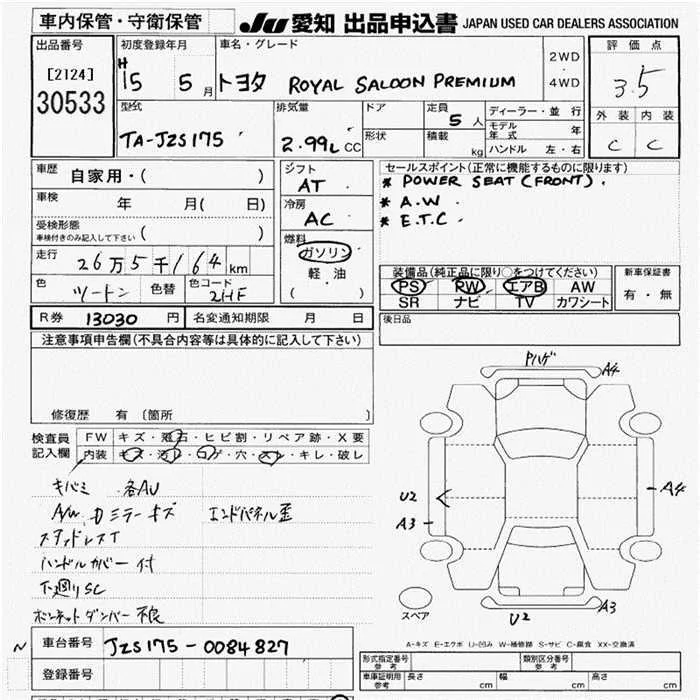 車内保管・守衛保管
JU 愛知 出品申込書 JAPAN USED CAR DEALERS ASSOCIATION
出品番号
[2124]
30533
初度登録年月
H
15 5 月
車名・グレード
トヨタ ROYAL SALOON PREMIUM
2WD
・
4WD
評価点
3.5
外装 内装
C C
型式
TA-JZS175
排気量
2.99L CC
ドア
形状
定員
5 人
積載
kg
ディーラー・並行
モデル年式 年
ハンドル 左・右
車歴
自家用・( )
車検
年 月( 日)
受検形態
車検付きのみ記入して下さい ( )
走行
26万5千164 km
色
ツートン
色替
色コード
2HF
シフト
AT
冷房
AC
燃料
ガソリン
軽油
( )
セールスポイント(正常に機能するものに限ります)
* POWER SEAT (FRONT).
* A.W
* E.T.C
装備品(純正品に限り○をつけてください)
PS PW エアB AW
SR ナビ TV カワシート
新車保証書
有・無
R券 13030 円
名変通知期限 月 日
後日品
注意事項申告欄(不具合内容等は具体的に記入して下さい)
修復歴 有 〔箇所 〕
検査員
記入欄
FW キズ・飛石・ヒビ割・リペア跡・X要
内装 キズ・汚レ・コゲ・穴・スレ・キレ・破レ
キバミ 各AU
A/W ミラーキズ エンドパネル歪
スタッドレスT
ハンドルカバー付
下廻りSC
ボンネットダンパー不良
Pハゲ
A4
U2
A3
A4
スペア
U2
A3
A-キズ E-エクボ U-凹み W-補修跡 S-サビ C-腐食 XX-交換済
車台番号
JZS175-0084827
登録番号
形式指定番号
参考
類別区分番号
参考
車庫証明用
参考
長さ cm
幅 cm
高さ cm